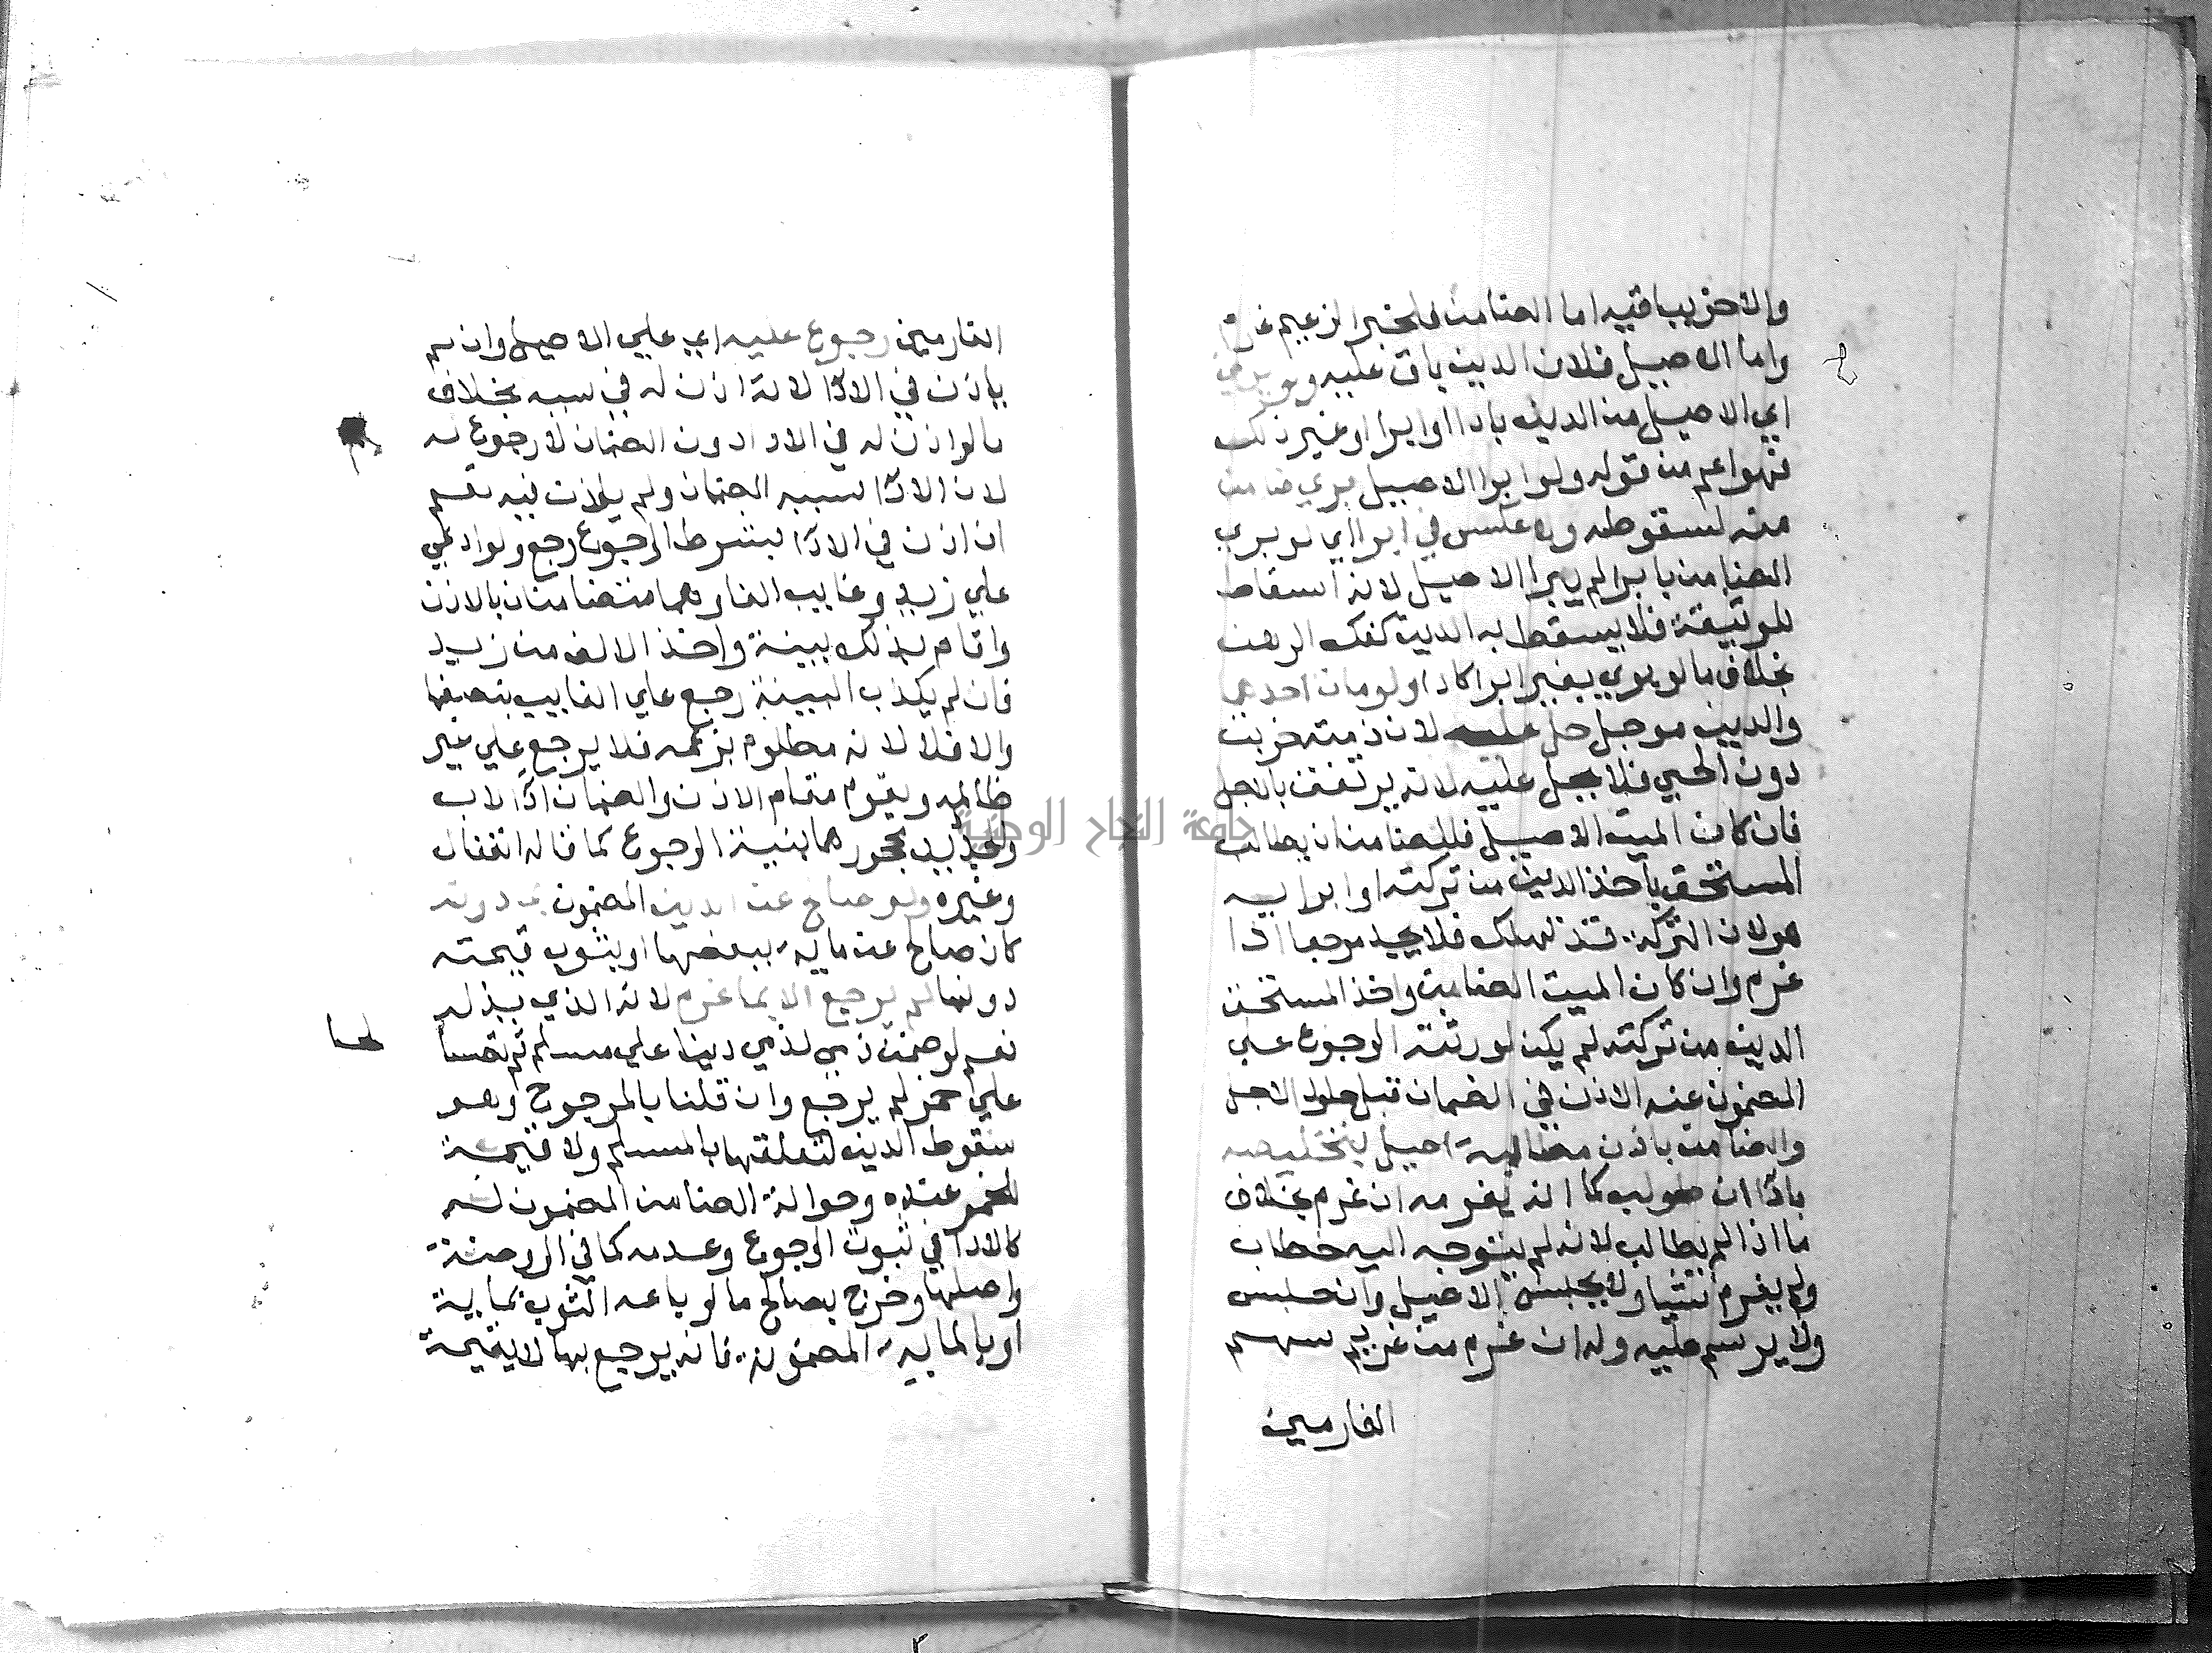 والاخر يباقيه اما الضامن فلخبر الزعيم غارم
واما الاصيل فلان الدين باق عليه ولو بري
اي الاصيل من الدين باداا وابرا او غير ذلك
فهو اعم من قوله ولو ابرا الاصيل بري ضامن
منه لسقوطه ولا عكس في ابرا اي لو بري
الضامن بابرا لم يبرا الاصيل لانه اسقاط
للوثيقة فلا يسقط به الدين كفك الرهن
بخلاف ما لو بري بغير ابرا كادا ولو مات احدهما
والدين موجل حل عليه لان ذمته خربت
دون الحي فلا يحل عليه لانه يرتفق بالاجل
فان كان الميت الاصيل فللضامن ان يطالب
المستحق باخذ الدين من تركته او ابرايه
هو لان التركة قد تهلك فلا يجد مرجعا اذا
غرم وان كان الميت الضامن واخذ المستحق
الدين من تركته لم يكن لورثته الرجوع علي
المضمون عنه الاذن في الضمان قبل حلول الاجل
والضامن باذن مطالبة اصيل بتخليصه
باداا ان طولب كما انه يغرمه ان غرم بخلاف
ما اذا لم يطالب لانه لم يتوجه اليه خطاب
ولم يغرم شيا ولا يحبس الاصيل وان حبس
ولا يرسم عليه وله ان غرم من غير سهم
الغارمين
الغارمين رجوع عليه اي علي الاصيل وان لم
ياذن في الادا لانه اذن له في سببه بخلاف
ما لو اذن له في الادا دون الضمان لا رجوع له
لان الادا سببه الضمان ولم ياذن فيه نعم
ان اذن في الادا بشرط الرجوع رجع ولو ادعي
علي زيد وغايب الفا وهما متضامنان بالاذن
واقام بذلك بينة واخذ الالف من زيد
فان لم يكذب البينة رجع علي الغايب بنصفها
والا فلا لانه مظلوم بزعمه فلا يرجع علي غير
ظالمه ويقوم مقام الاذن والضمان ادا الاب
والجد دين محجورهما بنية الرجوع كما قاله القفال
وغيره ولو صالح عن الدين المضمون بما دونه
كان صالح عن ماية ببعضها او بثوب قيمته
دونها لم يرجع الا بما غرم لانه الذي بذله
نعم لو ضمن ذمي لذمي دينا علي مسلم ثم تصالحا
علي خمر لم يرجع وان قلنا بالمرجوح وهو
سقوط الدين لتعلقها بالمسلم ولا قيمة
للخمر عنده وحوالة الضامن المضمون له
كالادا في ثبوت الرجوع وعدمه كما في الروضة
واصلها وخرج بصالح ما لو باعه الثوب بماية
او بالماية المضمونة فانه يرجع بها لا بقيمة
لحا
جامعة النجاح الوطنية